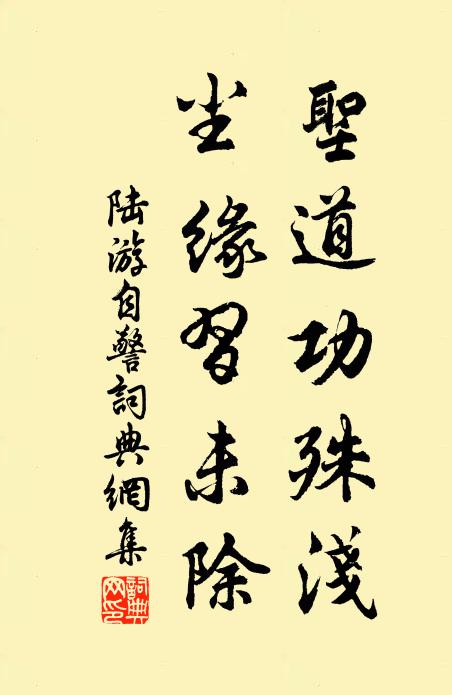 聖道功殊淺
尘緣習未除
陆游自警詞典網集
詞典網印